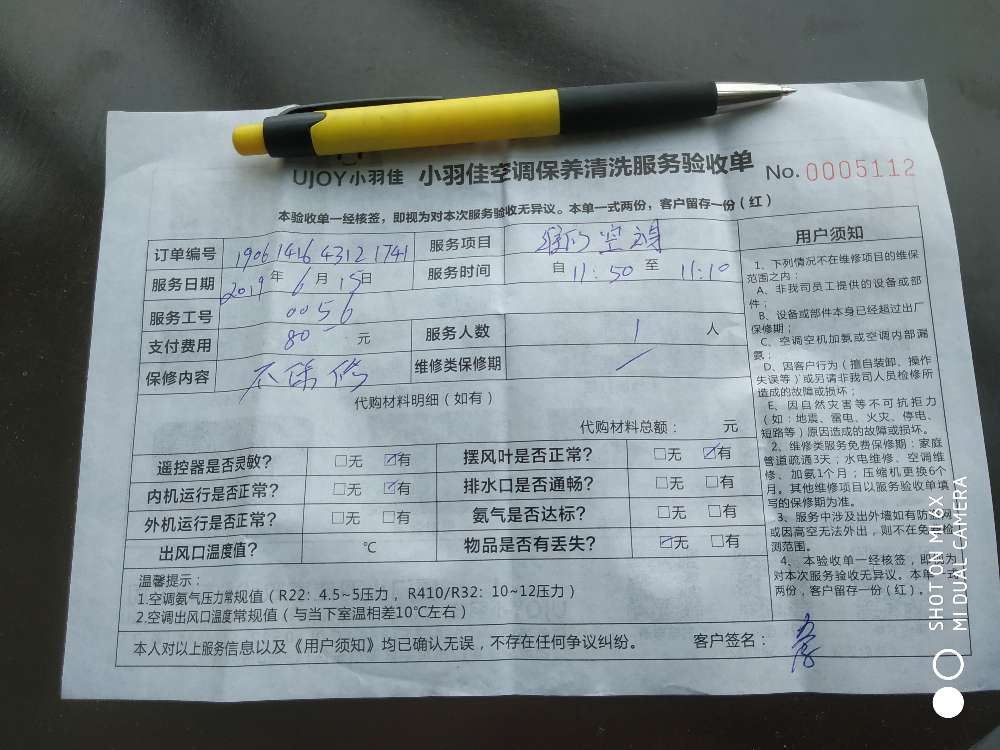 UJOY小羽佳 小羽佳空调保养清洗服务验收单 No. 0005112
本验收单一经核签，即视为对本次服务验收无异议。本单一式两份，客户留存一份（红）
订单编号 1906 1416 4312 1741 服务项目 空调
服务日期 2019年6月15日 服务时间 自 11:50 至 11:10
服务工号 0056
支付费用 80 元 服务人数 1 人
保修内容 不保修 维修类保修期 /
代购材料明细（如有）
代购材料总额： 元
遥控器是否灵敏? □无 ☑有 摆风叶是否正常? □无 ☑有
内机运行是否正常? □无 ☑有 排水口是否通畅? □无 □有
外机运行是否正常? □无 □有 氨气是否达标? □无 □有
出风口温度值? ℃ 物品是否有丢失? ☑无 □有
温馨提示：
1.空调氨气压力常规值（R22：4.5~5压力，R410/R32：10~12压力）
2.空调出风口温度常规值（与当下室温相差10℃左右）
本人对以上服务信息以及《用户须知》均已确认无误，不存在任何争议纠纷。 客户签名：
用户须知
1、下列情况不在维修项目的维保
范围之内：
A、非我司员工提供的设备或部
件；
B、设备或部件本身已经超过出厂
保修期；
C、空调空机加氨或空调内部漏
氨；
D、因客户行为（擅自装卸、操作
失误等）或另请非我司人员检修所
造成的故障或损坏；
E、因自然灾害等不可抗拒力
（如：地震、雷电、火灾、停电、
短路等）原因造成的故障或损坏。
2、维修类服务免费保修期：家庭
管道疏通3天；水电维修、空调维
修、加氨1个月；压缩机更换6个
月。其他维修项目以服务验收单填
写的保修期为准。
3、服务中涉及出外墙如有防
或因高空无法外出，则不在免 检
测范围。
4、本验收单一经核签，即 为
对本次服务验收无异议。本单一式
两份，客户留存一份（红）。
SHOT ON MI 6X
MI DUAL CAMERA